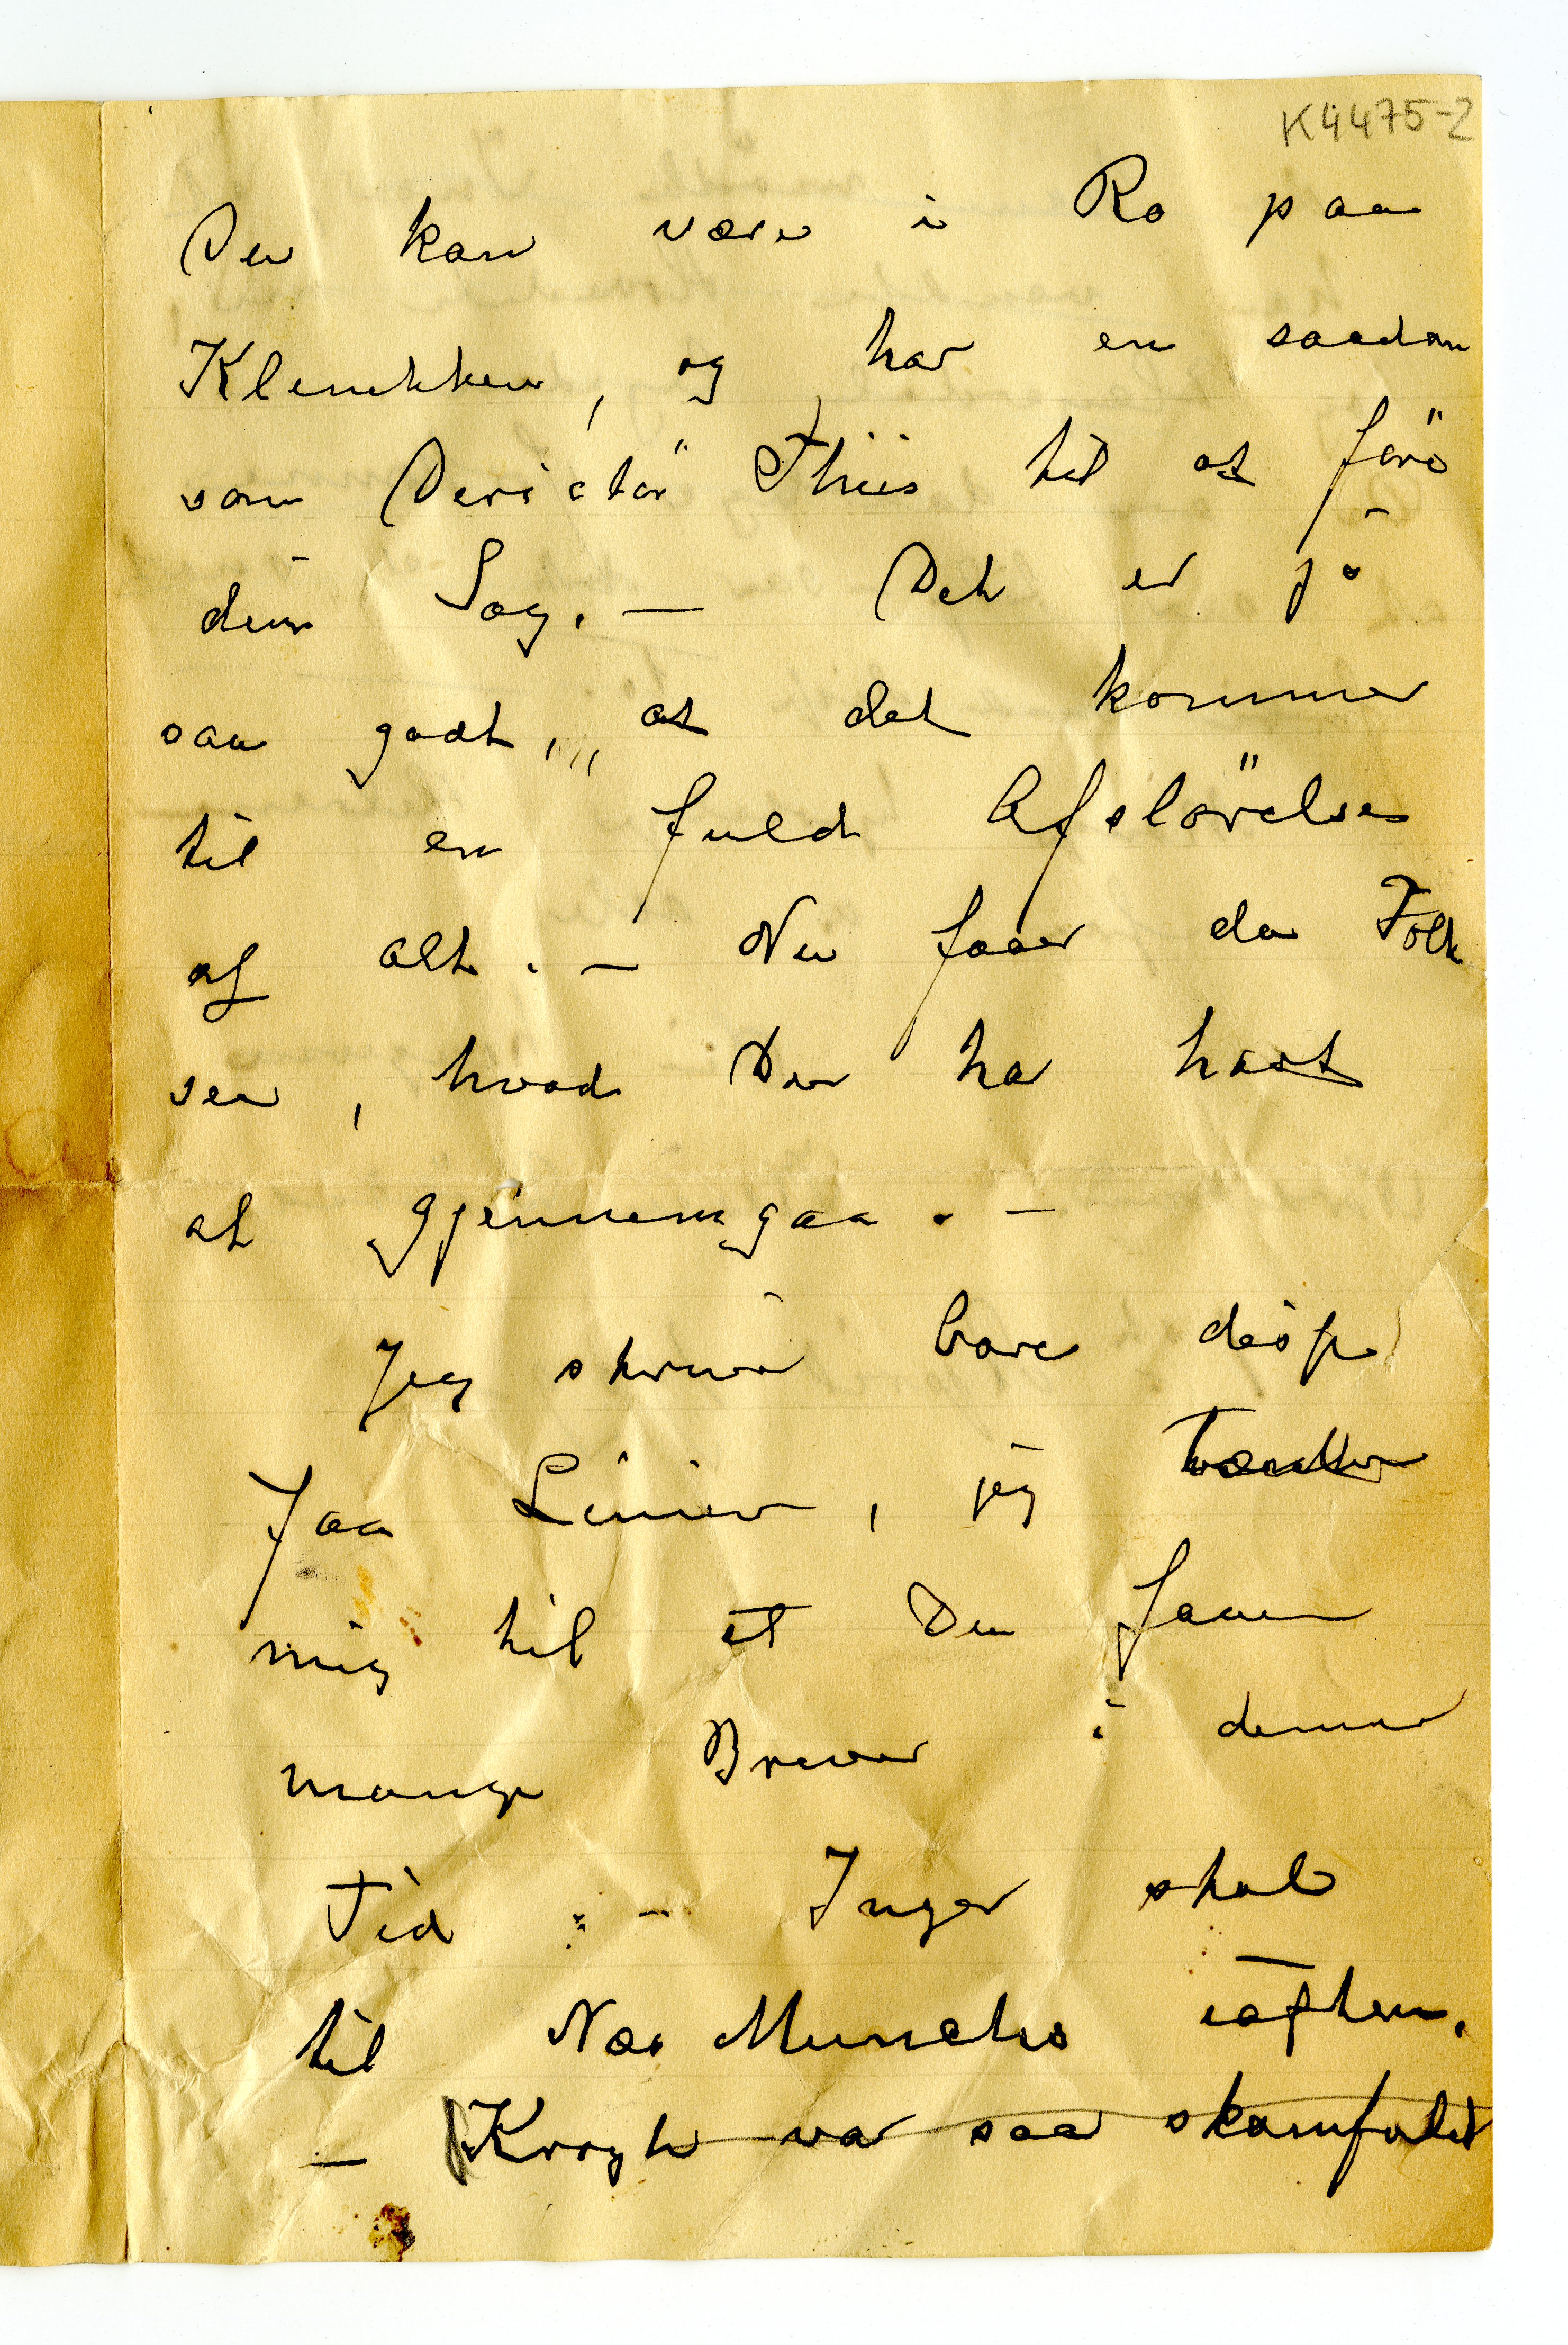 K4475-2
Du kan være i Ro paa
Klinikken, og har en saadan
som Derictör Thiis til at före
din Sag. — Det er jo
saa godt, at det kommer
til en fuld Afslörelse
af Alt. — Nu faaer da Folk
see, hvad Du ha havt
at gjennemgaa. —
Jeg skriver bare disse
faa Linier, jeg tænker
mig til at Du faaer
mange Brever i denne
Tid. — Inger skal
til Munchs iaften.
— Krogh var saa skamfuld